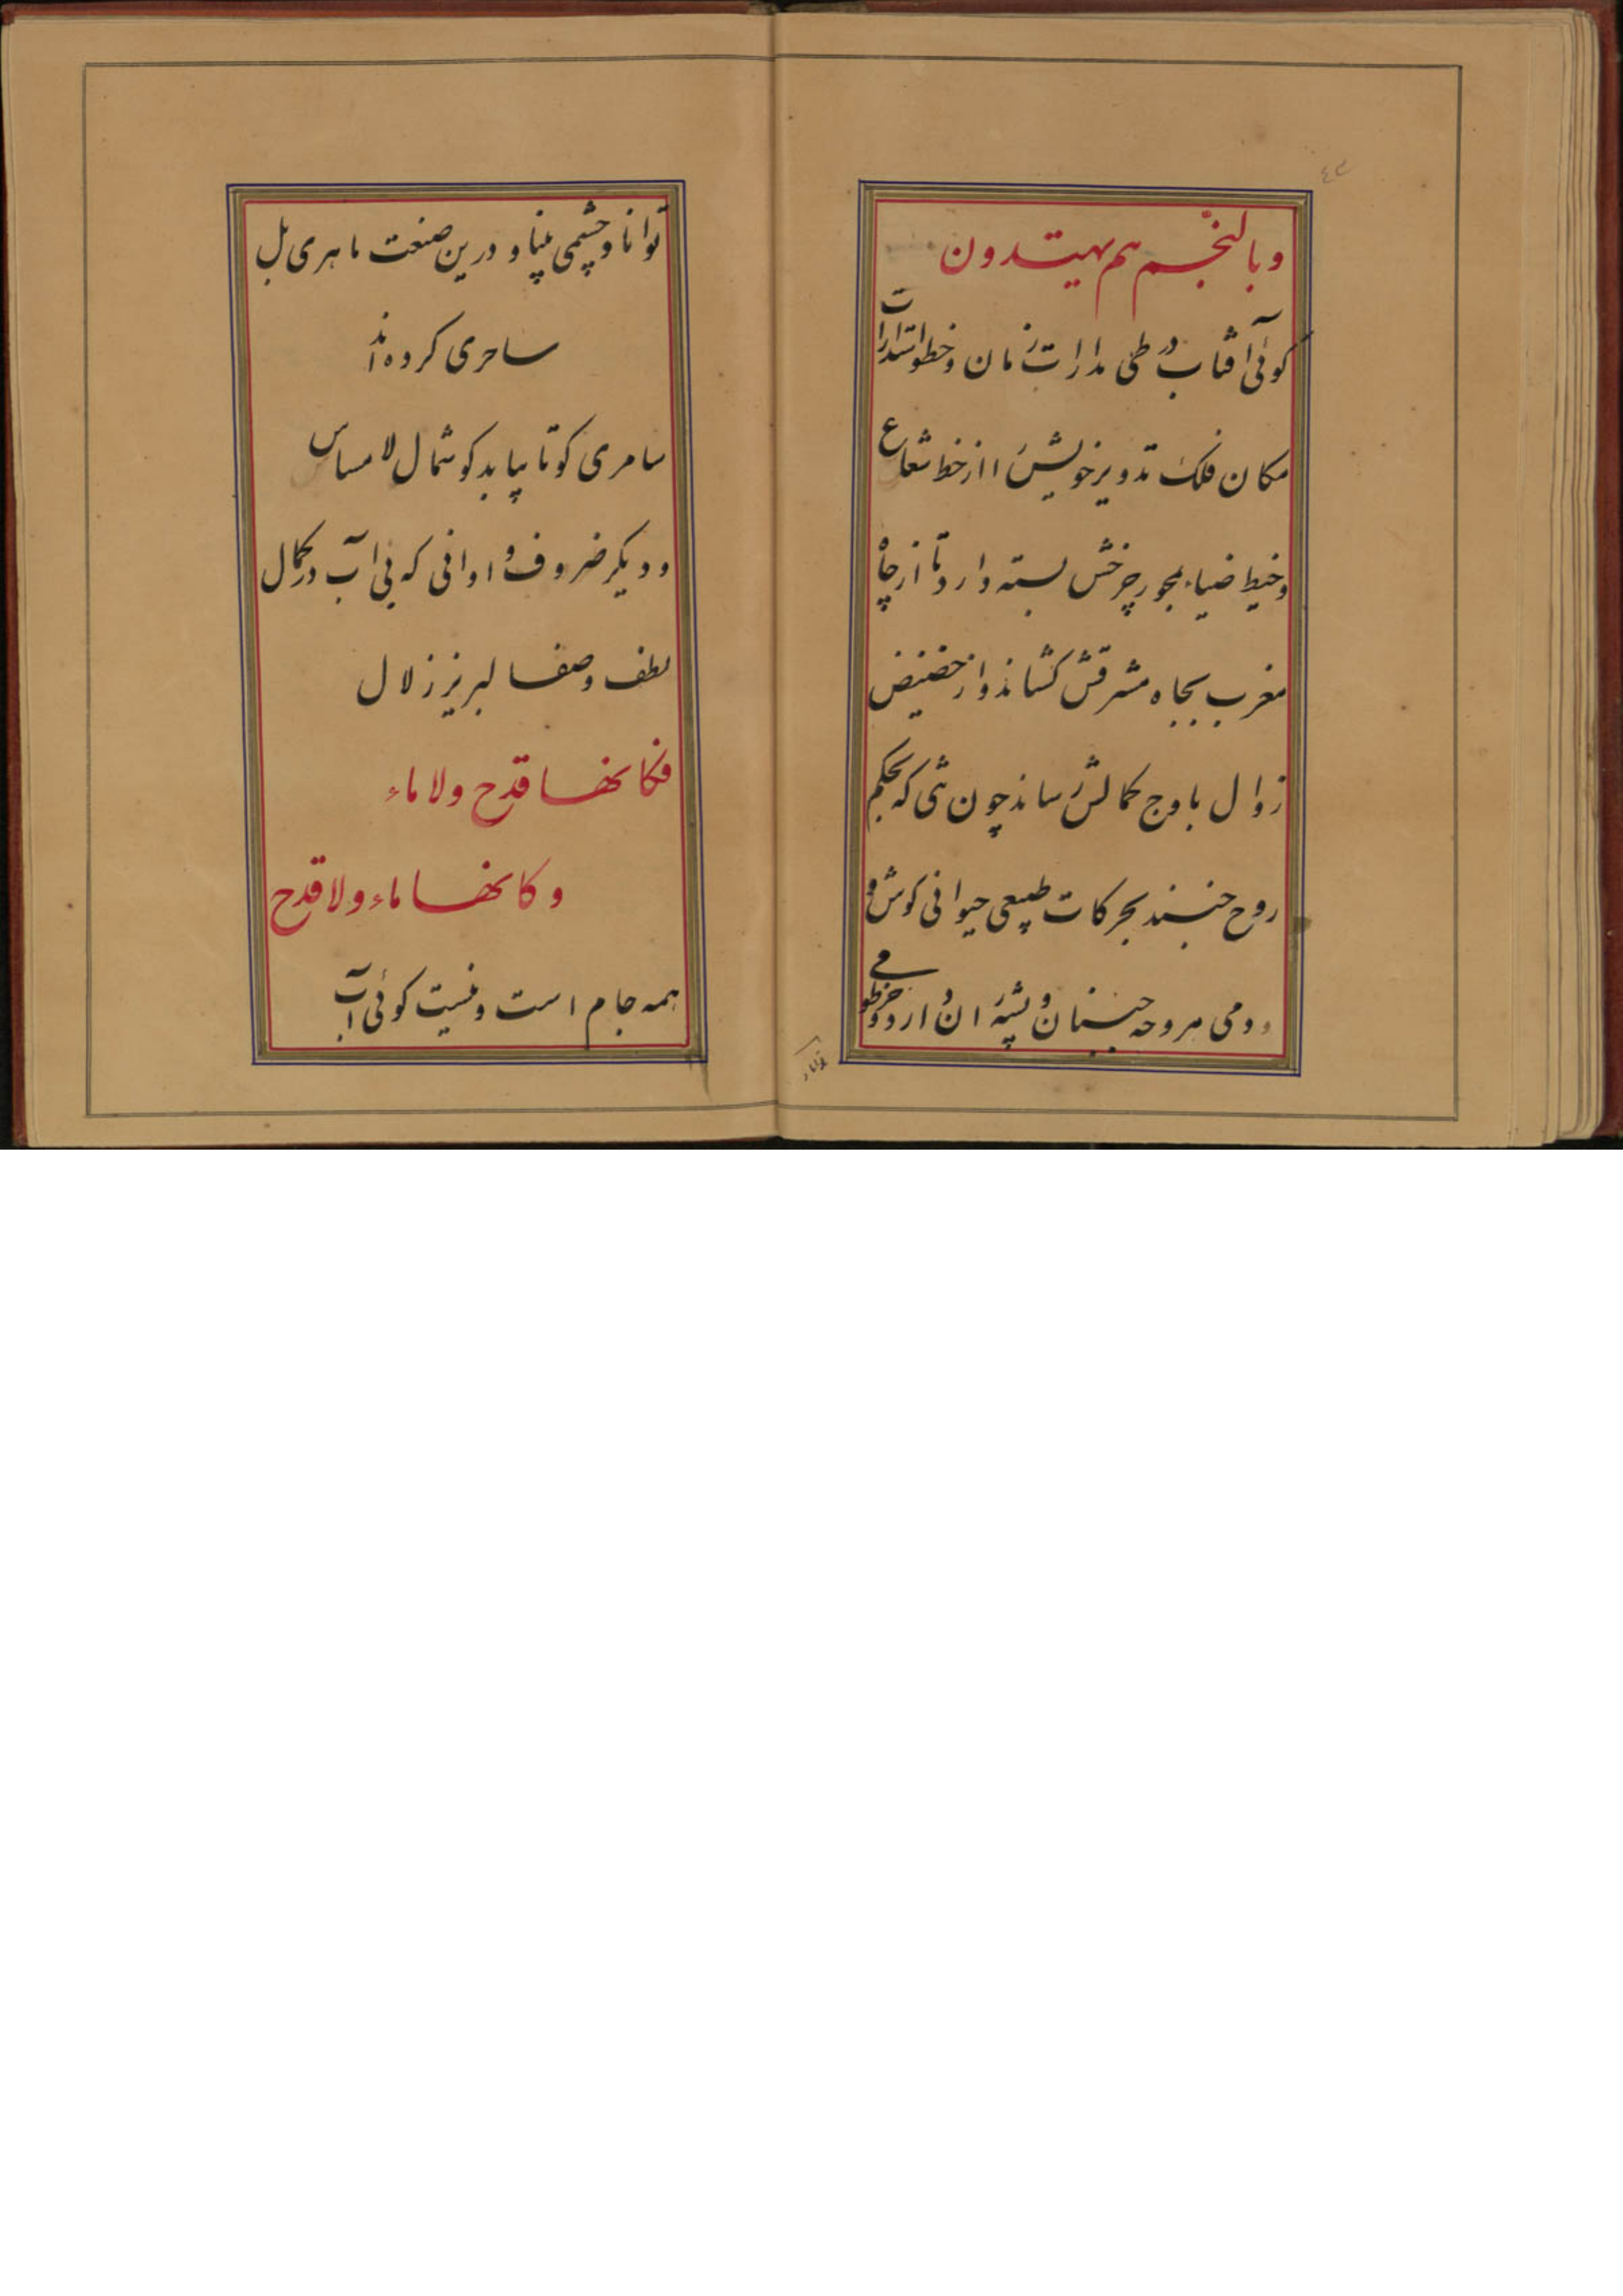 ٤٣
وبالنّجم هم یهتدون
کوئی آفتاب در طی مدارات زمان و خطوات استدارات
مکان فلک تدویر خویش را از خط شعاع
و خیط ضیاء بمحور چرخش بسته دارد تا از چاه
مغرب بجاه مشرقش کشاند و از حضیض
زوال باوج کمالش رساند چون شی که بحکم
روح جنبند بحرکات طبیعی حیوانی کوش و
دمی مروحه جنبان و پشه ران دارد و خرطومی
توانا و
توانا و چشمی بینا و درین صنعت ماهری بل
ساحری کرده اند
سامری کو تا بیابد کوشمال لا مساس
و دیکر ضروف و اوانی که بی آب در کمال
لطف و صفا لبریز زلال
فکانها قدح ولا ماء
وکانها ماء ولا قدح
همه جام است و نیست کوئی آب